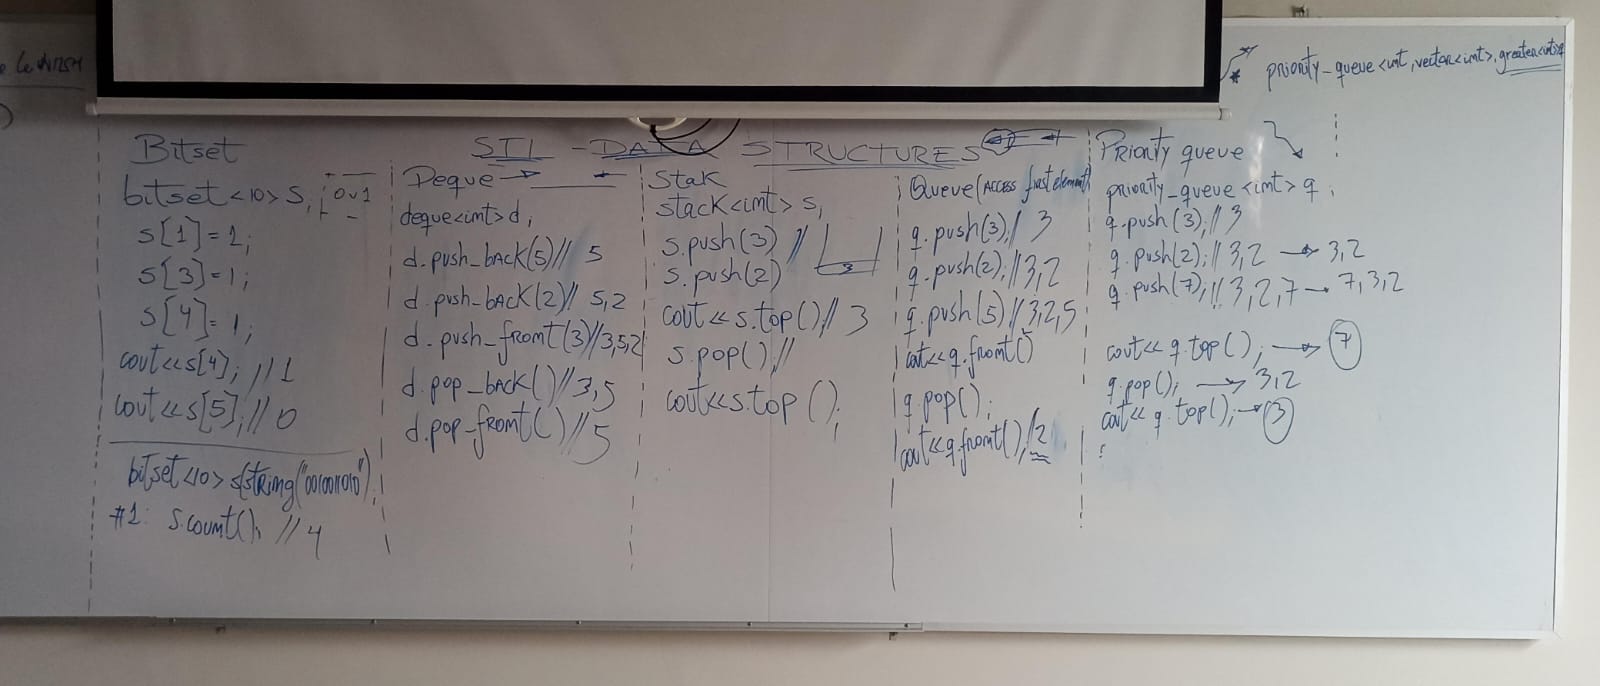 priority_queue<int, vector<int>, greater<int>>
STL - DATA STRUCTURES
Bitset
bitset<10> s; 0 v 1
s[1]=1;
s[3]=1;
s[4]=1;
cout<<s[4]; //1
cout<<s[5]; //0
bitset<10> s(string("0010011010")
#1: s.count(); //4
Deque
deque<int> d;
d.push_back(5)// 5
d.push_back(2)// 5,2
d.push_front(3)//3,5,2
d.pop_back()//3,5
d.pop_front()//5
Stak
stack<int> s;
s.push(3) // 3
s.push(2)
cout<<s.top()// 3
s.pop();//
cout<<s.top();
Queue(ACCESS first element)
q.push(3);// 3
q.push(2);//3,2
q.push(5)//3,2,5
cout<<q.front()
q.pop();
cout<<q.front();//2
Priority queue
priority_queue<int> q;
q.push(3);// 3
q.push(2);// 3,2 → 3,2
q.push(7);// 3,2,7 → 7,3,2
cout<< q.top(); → 7
q.pop(); → 3,2
cout<< q.top(); → 3